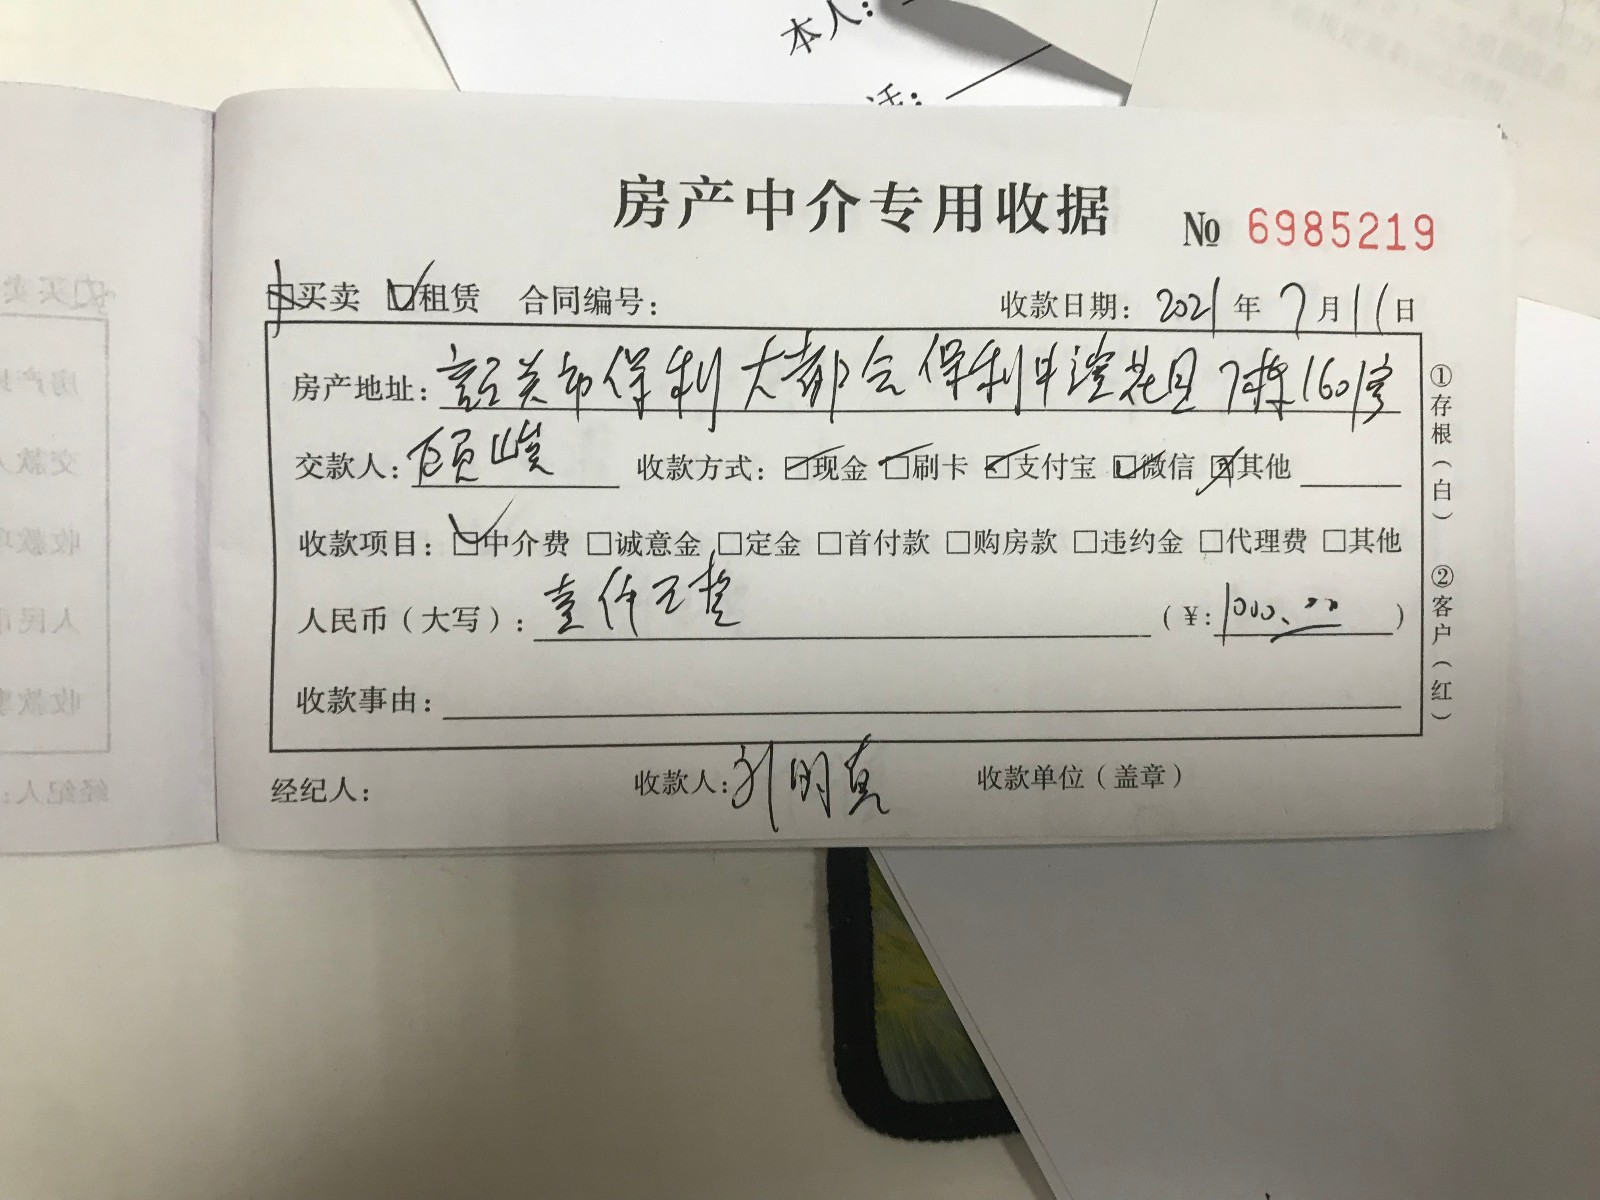 本人：
话：
房产中介专用收据
№ 6985219
□买卖 □租赁 合同编号： 收款日期：2021年7月11日
房产地址：韶关市保利大都会保利中滢花园7栋1601房
交款人： 收款方式：□现金 □刷卡 □支付宝 □微信 □其他
收款项目：□中介费 □诚意金 □定金 □首付款 □购房款 □违约金 □代理费 □其他
人民币（大写）：壹仟元整 （¥：1000.00）
收款事由：
经纪人： 收款人：刘明真 收款单位（盖章）
①存根（白） ②客户（红）